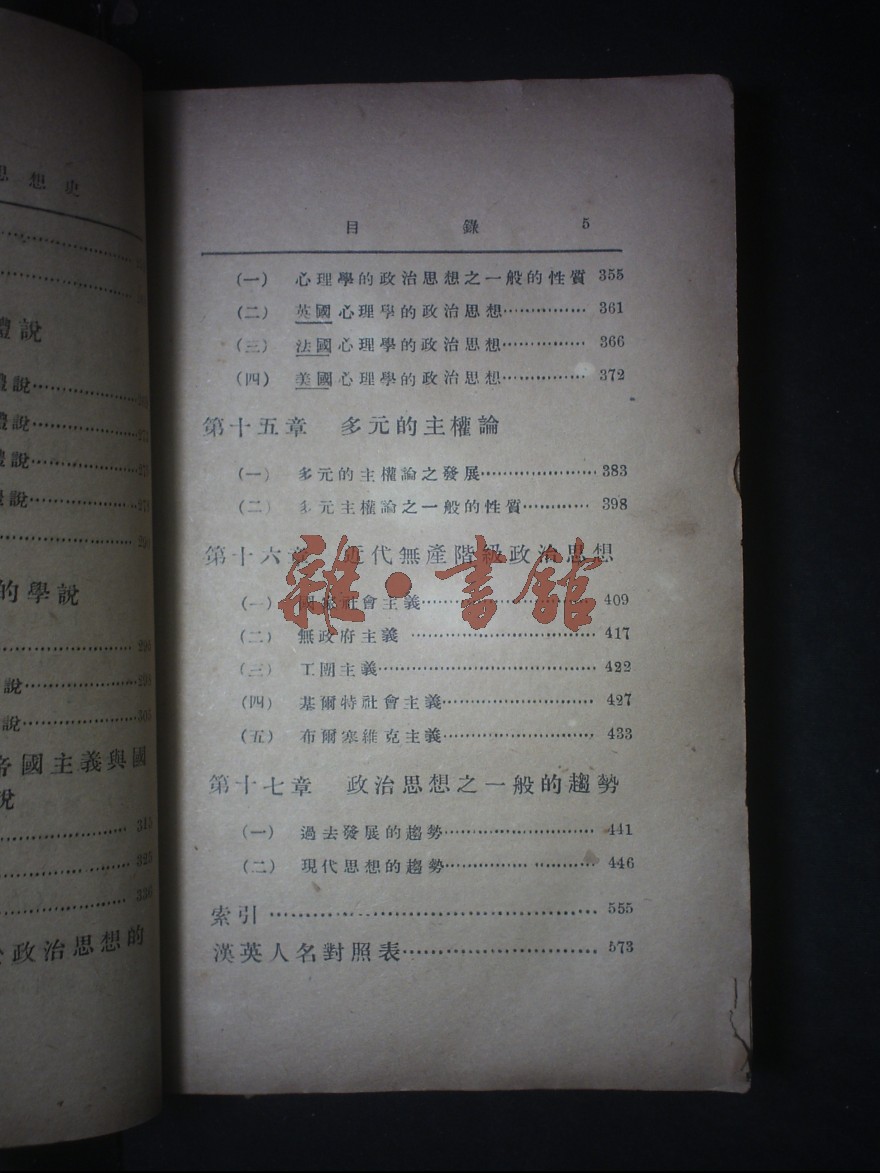 思想史
體說
體說……………
體說……………
體說……………
說……………
的學說
說……………
說……………
帝國主義與國
說
政治思想的
目錄 5
(一) 心理學的政治思想之一般的性質 355
(二) 英國心理學的政治思想…………… 361
(三) 法國心理學的政治思想…………… 366
(四) 美國心理學的政治思想…………… 372
第十五章 多元的主權論
(一) 多元的主權論之發展…………… 383
(二) 多元主權論之一般的性質………… 398
第十六章 近代無產階級政治思想
(一) 國家社會主義…………………… 409
(二) 無政府主義 …………………… 417
(三) 工團主義……………………… 422
(四) 基爾特社會主義………………… 427
(五) 布爾塞維克主義………………… 433
第十七章 政治思想之一般的趨勢
(一) 過去發展的趨勢………………… 441
(二) 現代思想的趨勢………………… 446
索引…………………………………… 555
漢英人名對照表……………………… 573
雜·書館